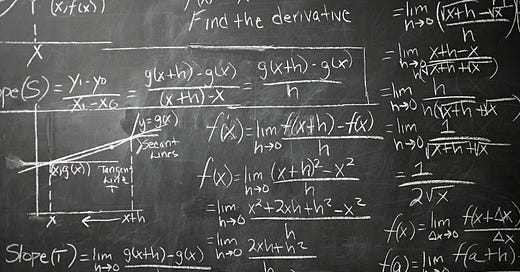 (x, f(x))
X
Find the derivative
ope(S) = y₁-y₀/x₁-x₀ = g(x+h)-g(x)/(x+h)-x = g(x+h)-g(x)/h
y=g(x)
Secant
Lines
(x,g(x))
Tangent
Line
T
x ← x+h
Slope(T) = lim h→0 g(x+h)-g(x)/h
f'(x) = lim h→0 f(x+h)-f(x)/h
f'(x) = lim h→0 (x+h)²-x²/h
= lim h→0 x²+2xh+h²-x²/h
= lim h→0 2xh+h²/h
= lim h→0 (√x+h-√x
= lim h→0 x+h-x/h√x+h+√x
= lim h→0 h/h(√x+h+√x
= lim h→0 1/√x+h+√x
= 1/2√x
f(x) = lim Δx→0 f(x+Δx
f(a) = lim f(a+h)